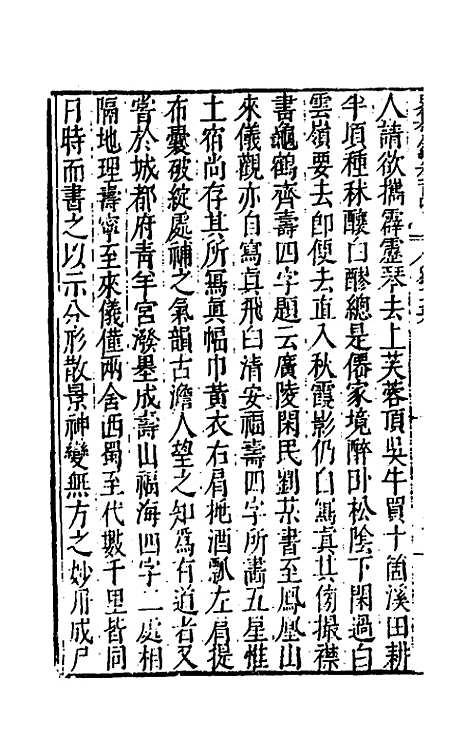 人請欲攜霹靂琴去上芙蓉頂吳牛買十箇溪田耕
半頃種秫釀白醪總是僊家境醉卧松陰下閑過白
雲嶺要去即便去直入秋霞影仍自寫真其傍撮襟
書龜鶴齊壽四字題云廣陵閑民劉某書至鳳凰山
來儀觀亦自寫真飛白清安福壽四字所畵五星惟
土宿尚存其所寫真幅巾黃衣右肩拖酒瓢左肩提
布囊破綻處補之氣韻古澹人望之知為有道者又
嘗於城都府青羊宮潑墨成壽山福海四字二處相
隔地理壽寧至來儀僅兩舍西蜀至代數千里皆同
日時而書之以示分形散景神變無方之妙用成尸